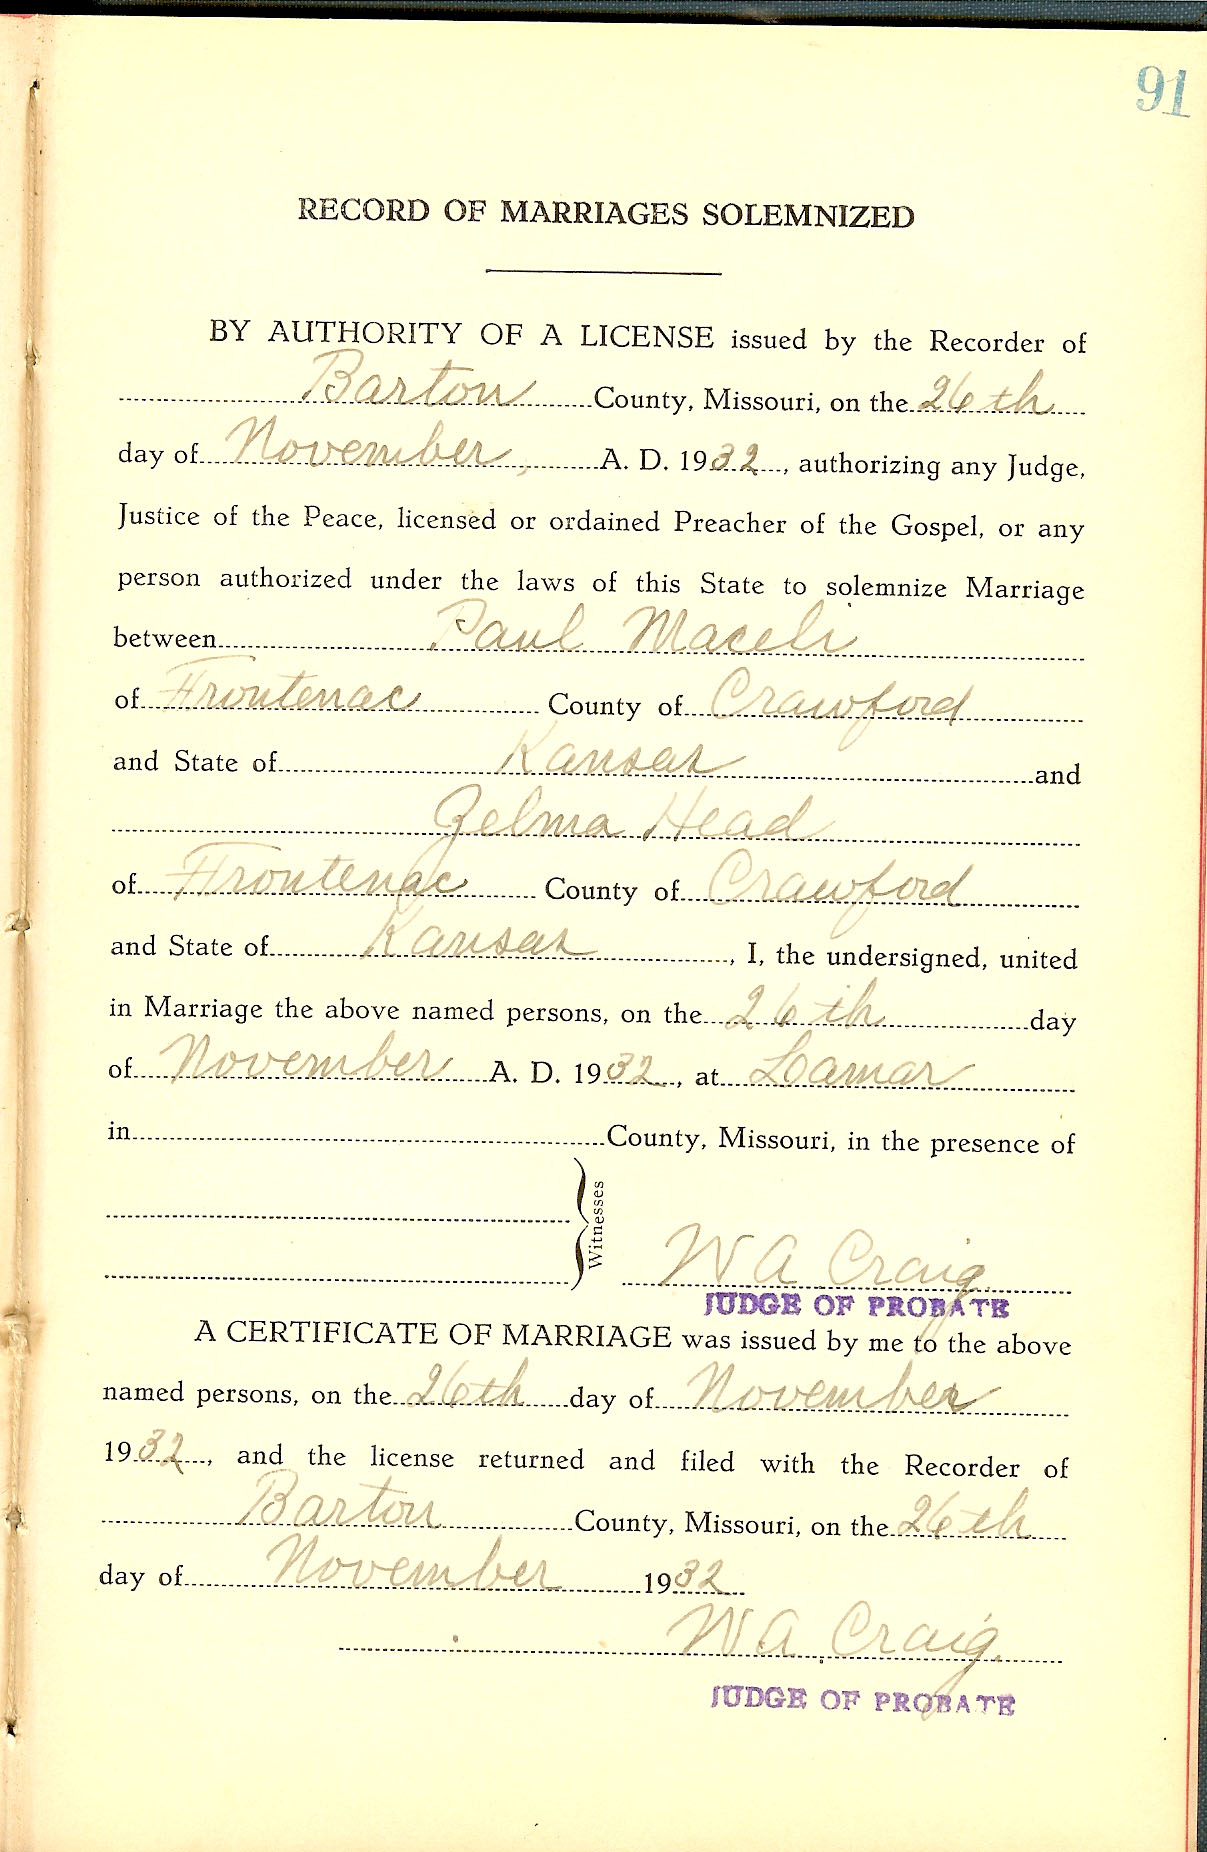 91
RECORD OF MARRIAGES SOLEMNIZED
BY AUTHORITY OF A LICENSE issued by the Recorder of
Barton County, Missouri, on the 26th
day of November, A. D. 1932, authorizing any Judge,
Justice of the Peace, licensed or ordained Preacher of the Gospel, or any
person authorized under the laws of this State to solemnize Marriage
between Paul Maceli
of Frontenac County of Crawford
and State of Kansas and
Zelma Head
of Frontenac County of Crawford
and State of Kansas, I, the undersigned, united
in Marriage the above named persons, on the 26th day
of November A. D. 1932, at Lamar
in County, Missouri, in the presence of
Witnesses
W A Craig
JUDGE OF PROBATE
A CERTIFICATE OF MARRIAGE was issued by me to the above
named persons, on the 26th day of November
1932, and the license returned and filed with the Recorder of
Barton County, Missouri, on the 26th
day of November 1932
W A Craig
JUDGE OF PROBATE